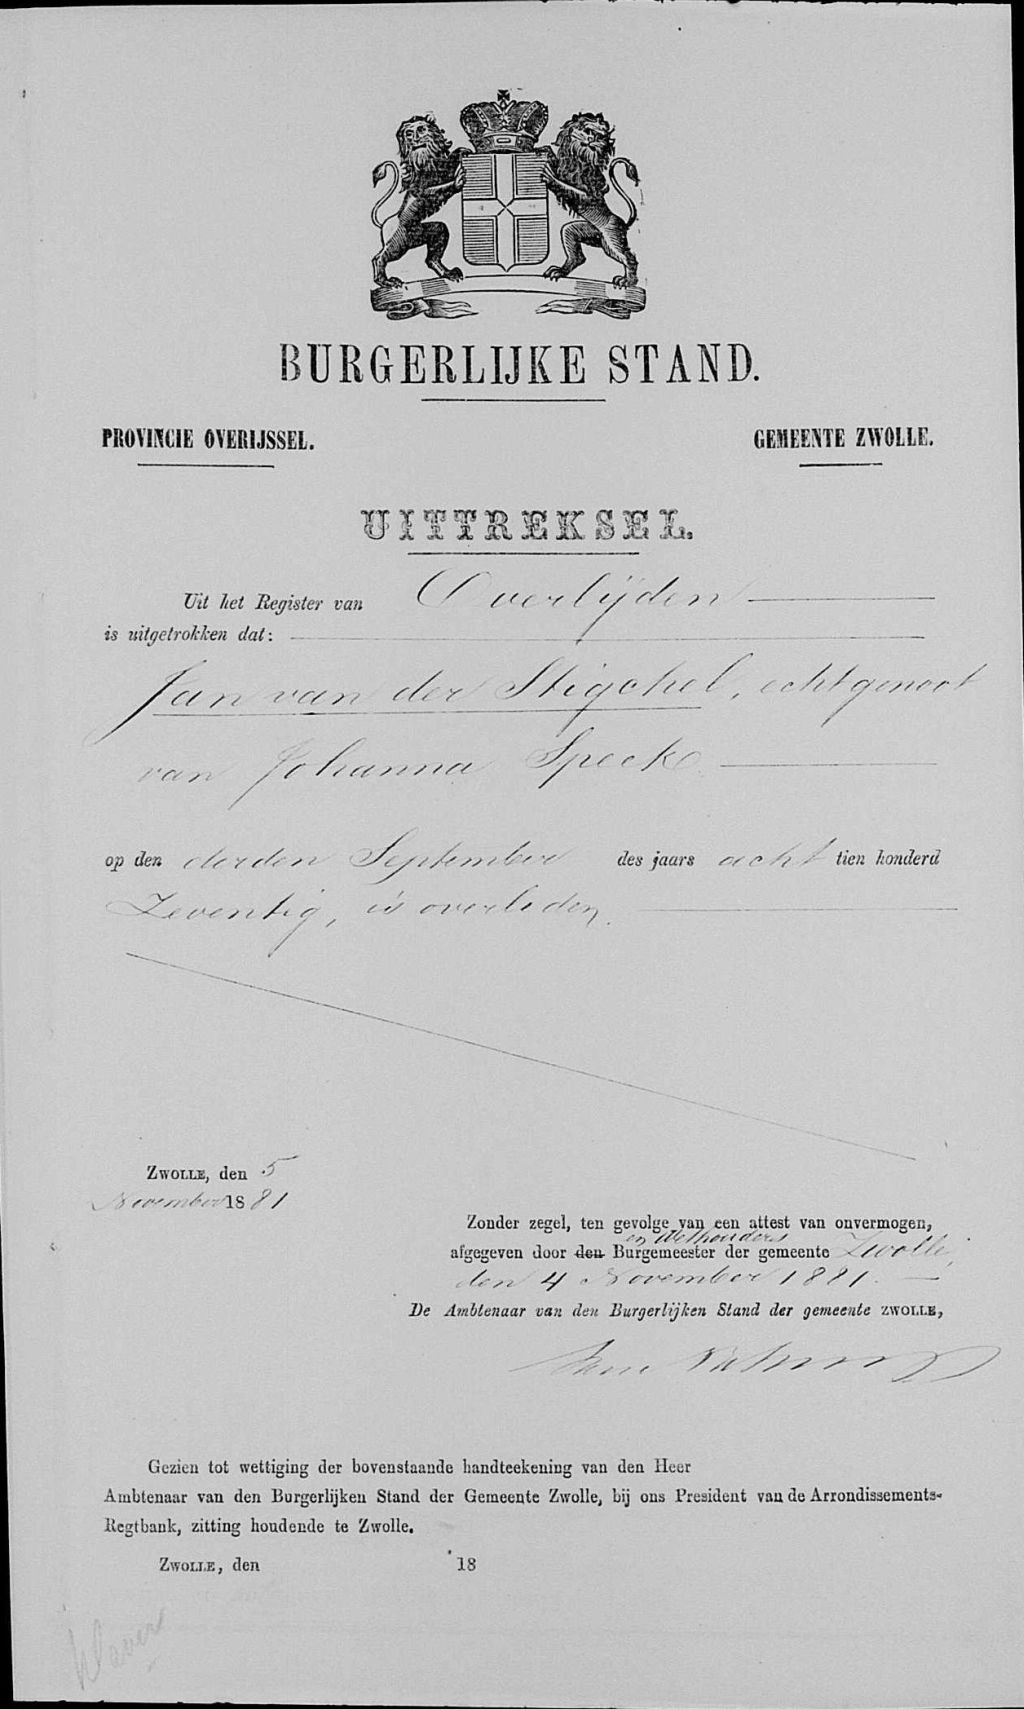 BURGERLIJKE STAND.
PROVINCIE OVERIJSSEL.
GEMEENTE ZWOLLE.
UITTREKSEL.
Uit het Register van Overlijden
is uitgetrokken dat:
Jan van der Stigchel, echtgenoot
van Johanna Speck
op den derden September des jaars acht tien honderd
Zeventig, is overleden.
ZWOLLE, den 5
November 1881
Zonder zegel, ten gevolge van een attest van onvermogen,
en Wethouders
afgegeven door den Burgemeester der gemeente Zwolle,
den 4 November 1881.
De Ambtenaar van den Burgerlijken Stand der gemeente ZWOLLE,
Gezien tot wettiging der bovenstaande handteekening van den Heer
Ambtenaar van den Burgerlijken Stand der Gemeente Zwolle, bij ons President van de Arrondissements-
Regtbank, zitting houdende te Zwolle.
ZWOLLE, den 18